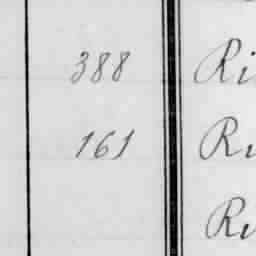 388 Ri
161 Ru
Ru